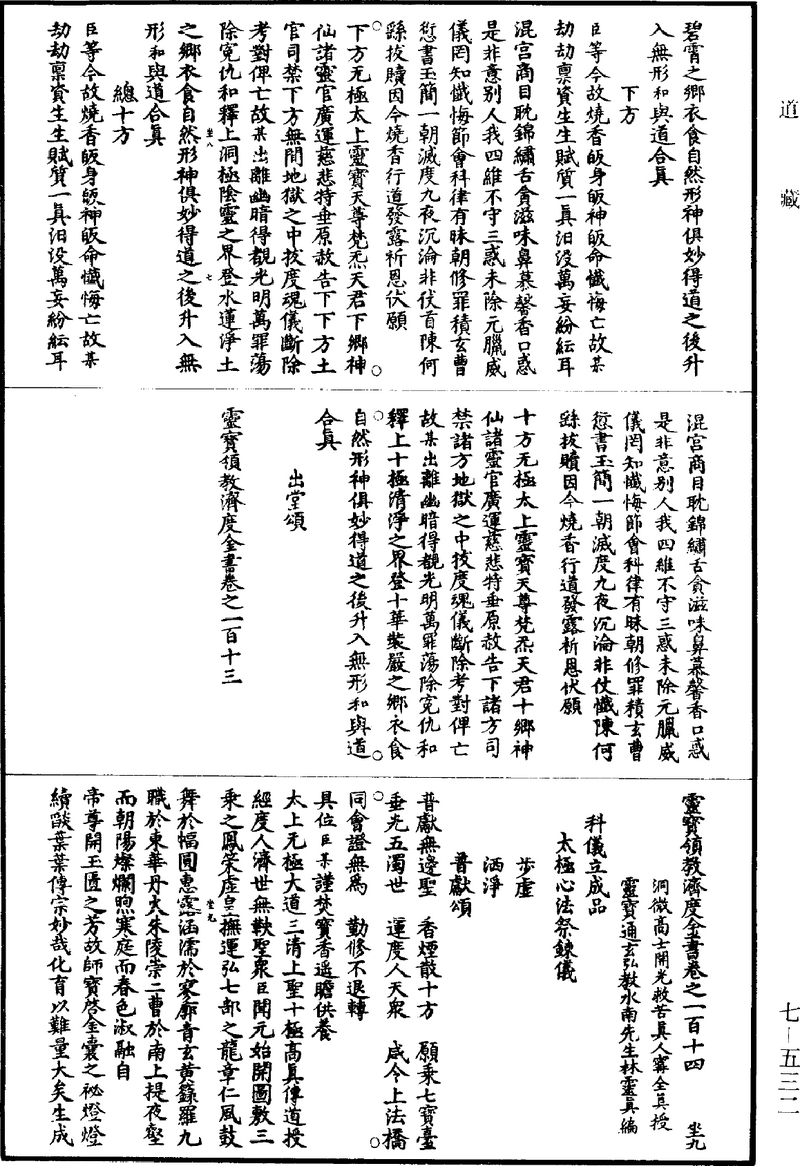 道藏
七—五三二
碧霄之鄉衣食自然形神俱妙得道之後升
入無形和與道合眞
下方
臣等今故燒香皈身皈神皈命懺悔亡故某
劫劫稟資生生賦質一眞汨没萬妄紛紜耳
混宮商目耽錦繡舌貪滋味鼻慕馨香口惑
是非意别人我四維不守三惑未除元臘威
儀罔知懺悔節會科律有昧朝修罪積玄曹
愆書玉簡一朝滅度九夜沉淪非仗首陳何
繇拔贖因今燒香行道發露祈恩伏願
下方无極太上靈寶天尊梵炁天君下鄉神
仙諸靈官廣運慈悲特垂原赦告下下方土
官司禁下方無間地獄之中拔度魂儀斷除
考對俾亡故某出離幽暗得覩光明萬罪蕩
除寃仇和釋上洞極陰靈之界登水蓮淨土
坐八
七
之鄉衣食自然形神俱妙得道之後升入無
形和與道合眞
總十方
臣等今故燒香皈身皈神皈命懺悔亡故某
劫劫稟資生生賦質一眞汨没萬妄紛紜耳
混宮商目耽錦繡舌貪滋味鼻慕馨香口惑
是非意别人我四維不守三惑未除元臘威
儀罔知懺悔節會科律有昧朝修罪積玄曹
愆書玉簡一朝滅度九夜沉淪非仗懺陳何
繇拔贖因今燒香行道發露祈恩伏願
十方无極太上靈寶天尊梵炁天君十鄉神
仙諸靈官廣運慈悲特垂原赦告下諸方司
禁諸方地獄之中拔度魂儀斷除考對俾亡
故某出離幽暗得覩光明萬罪蕩除寃仇和
釋上十極清淨之界登十華裝嚴之鄉衣食
自然形神俱妙得道之後升入無形和與道
合眞
出堂頌
靈寶領教濟度金書卷之一百十三
靈寶領教濟度金書卷之一百十四
坐九
洞微高士開光救苦眞人甯全眞授
靈寶通玄弘教水南先生林靈眞編
科儀立成品
太極心法祭鍊儀
步虛
洒淨
普獻頌
普獻無邊聖　香煙散十方　願乘七寶臺
垂光五濁世　運度人天衆　咸令上法橋
同會證無爲　勤修不退轉
具位臣某謹焚寶香遥瞻供養
太上无極大道三清上聖十極高眞傳道授
經度人濟世無鞅聖衆臣聞元始開圖敷三
乘之鳳篆虛皇撫運弘七部之龍章仁風鼓
坐九
舞於幅圓惠露涵濡於寥廓青玄黄籙羅九
職於東華丹火朱陵崇二曹於南上提夜壑
而朝陽燦爛煦寒庭而春色淑融自
帝尊開玉匱之芳故師寶啓金囊之祕燈燈
續燄葉葉傳宗妙哉化育以難量大矣生成